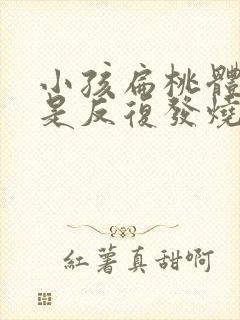 小孩扁桃體
是反復發燒
紅薯真甜啊